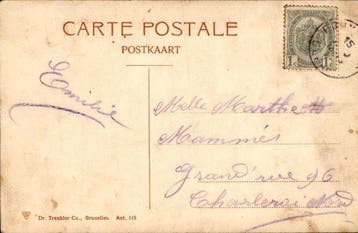 CARTE POSTALE
POSTKAART
1 1
Emilie
Melle Marthe
Mammés
Grand'rue 96
Charleroi Nord
Dr. Trenkler Co., Bruxelles. Ant. 115